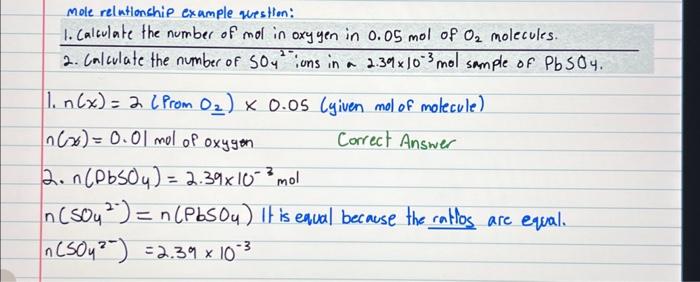 mole relationship example question:
1. Calculate the number of mol in oxygen in 0.05 mol of O₂ molecules.
2. Calculate the number of SO₄²⁻ ions in a 2.39x10⁻³ mol sample of PbSO₄.
1. n(x) = 2 (from O₂) × 0.05 (given mol of molecule)
n(x) = 0.01 mol of oxygen Correct Answer
2. n(PbSO₄) = 2.39x10⁻³ mol
n(SO₄²⁻) = n(PbSO₄) It is equal because the ratios are equal.
n(SO₄²⁻) = 2.39 × 10⁻³